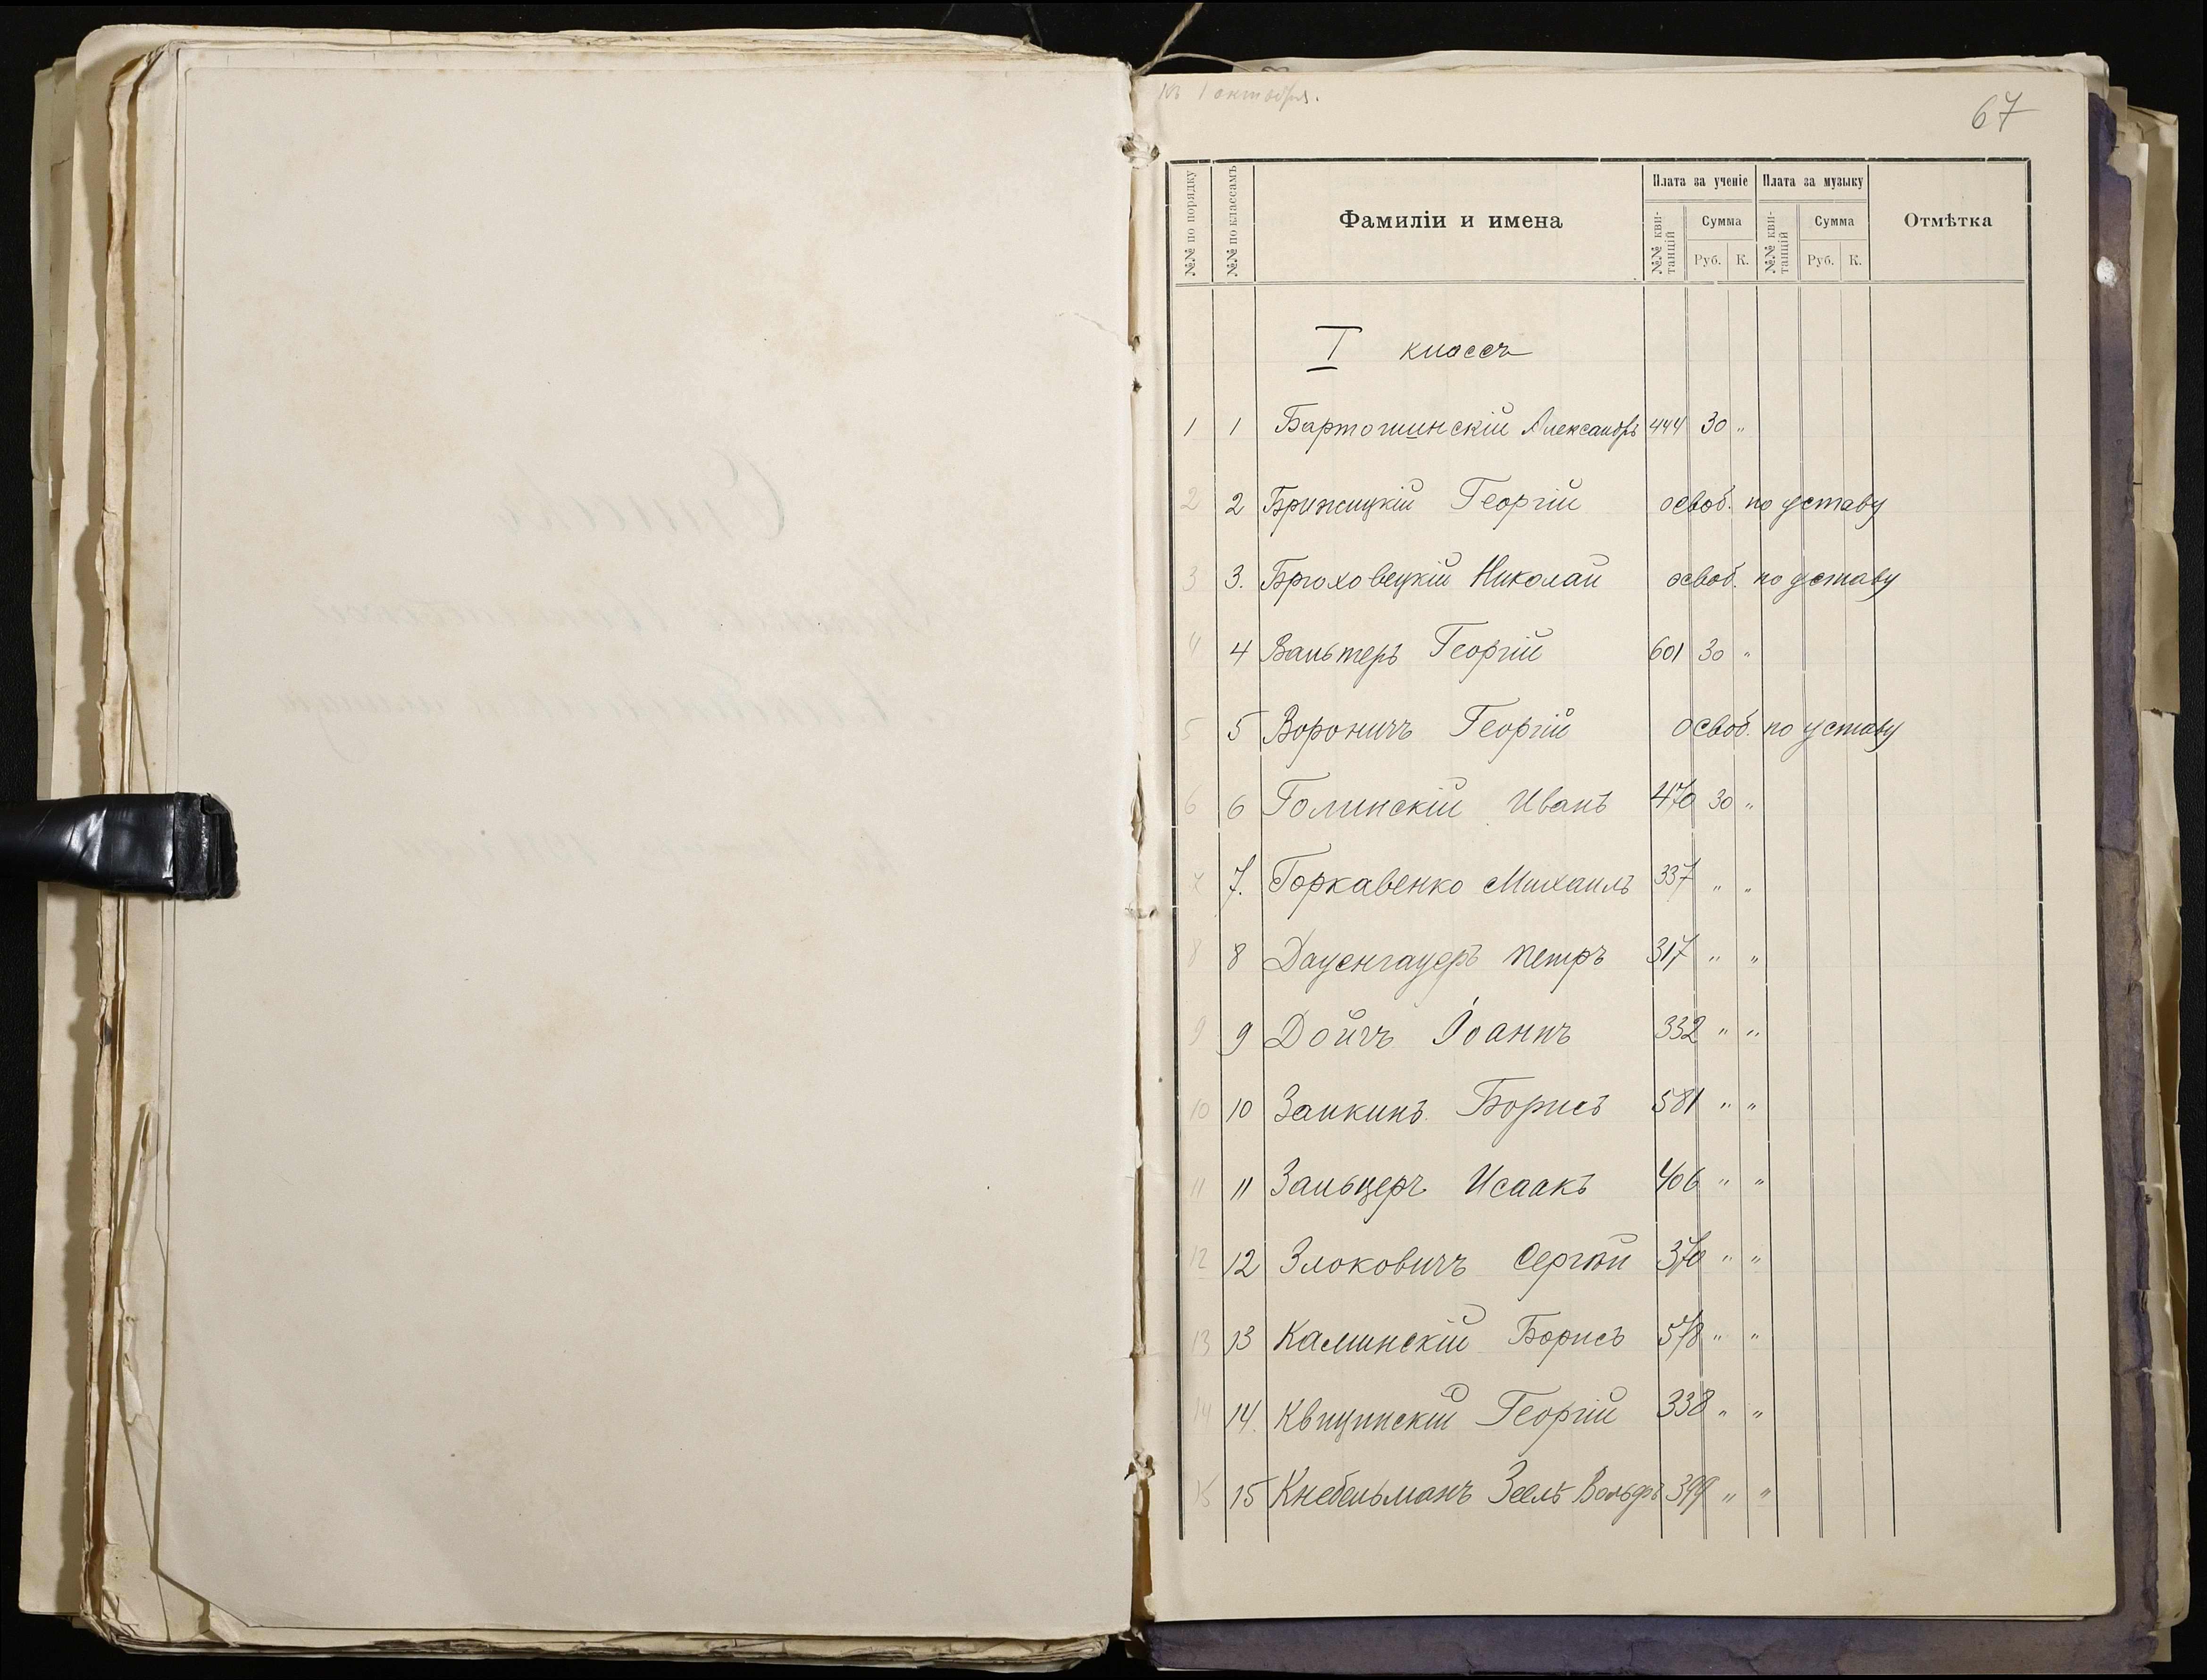 къ 1 октября.
67
№№ по порядку №№ по классамъ Фамиліи и имена Плата за ученіе Плата за музыку Отмѣтка
№№ квитанцій Сумма №№ квитанцій Сумма
Руб. К. Руб. К.
I классъ
1 1 Бартошинскій Александръ 444 30 "
2 2 Брижицкій Георгій освоб. по уставу
3 3. Брюховецкій Николай освоб. по уставу
4 4 Вальтеръ Георгій 601 30 "
5 5 Вороничъ Георгій освоб. по уставу
6 6 Голинскій Иванъ 470 30 "
7 7. Горкавенко Михаилъ 337 " "
8 8 Дауенгауеръ Петръ 317 " "
9 9 Дойчъ Іоаннъ 332 " "
10 10 Заикинъ Борисъ 581 " "
11 11 Зальцеръ Исаакъ 406 " "
12 12 Злоковичъ Сергѣй 370 " "
13 13 Калинскій Борисъ 578 " "
14 14. Квицинскій Георгій 338 " "
15 15 Кнебельманъ Зеель Вольфъ 399 " "